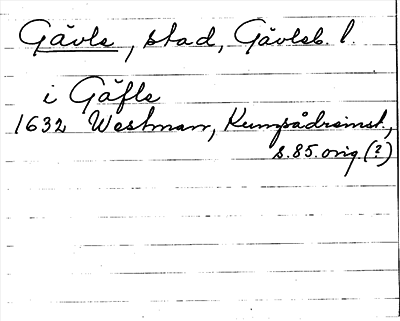 Gävle, stad, Gävleb. l.
i Gäfle
1632 Westman, 
s. 85. orig. (?)